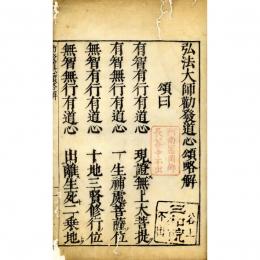 弘法大師勸發道心頌略解
頌曰
有智有行有道心　現證無上大菩提
有智無行有道心　一生補處菩薩位
無智有行有道心　十地三賢修行位
無智無行有道心　出離生死二乘地